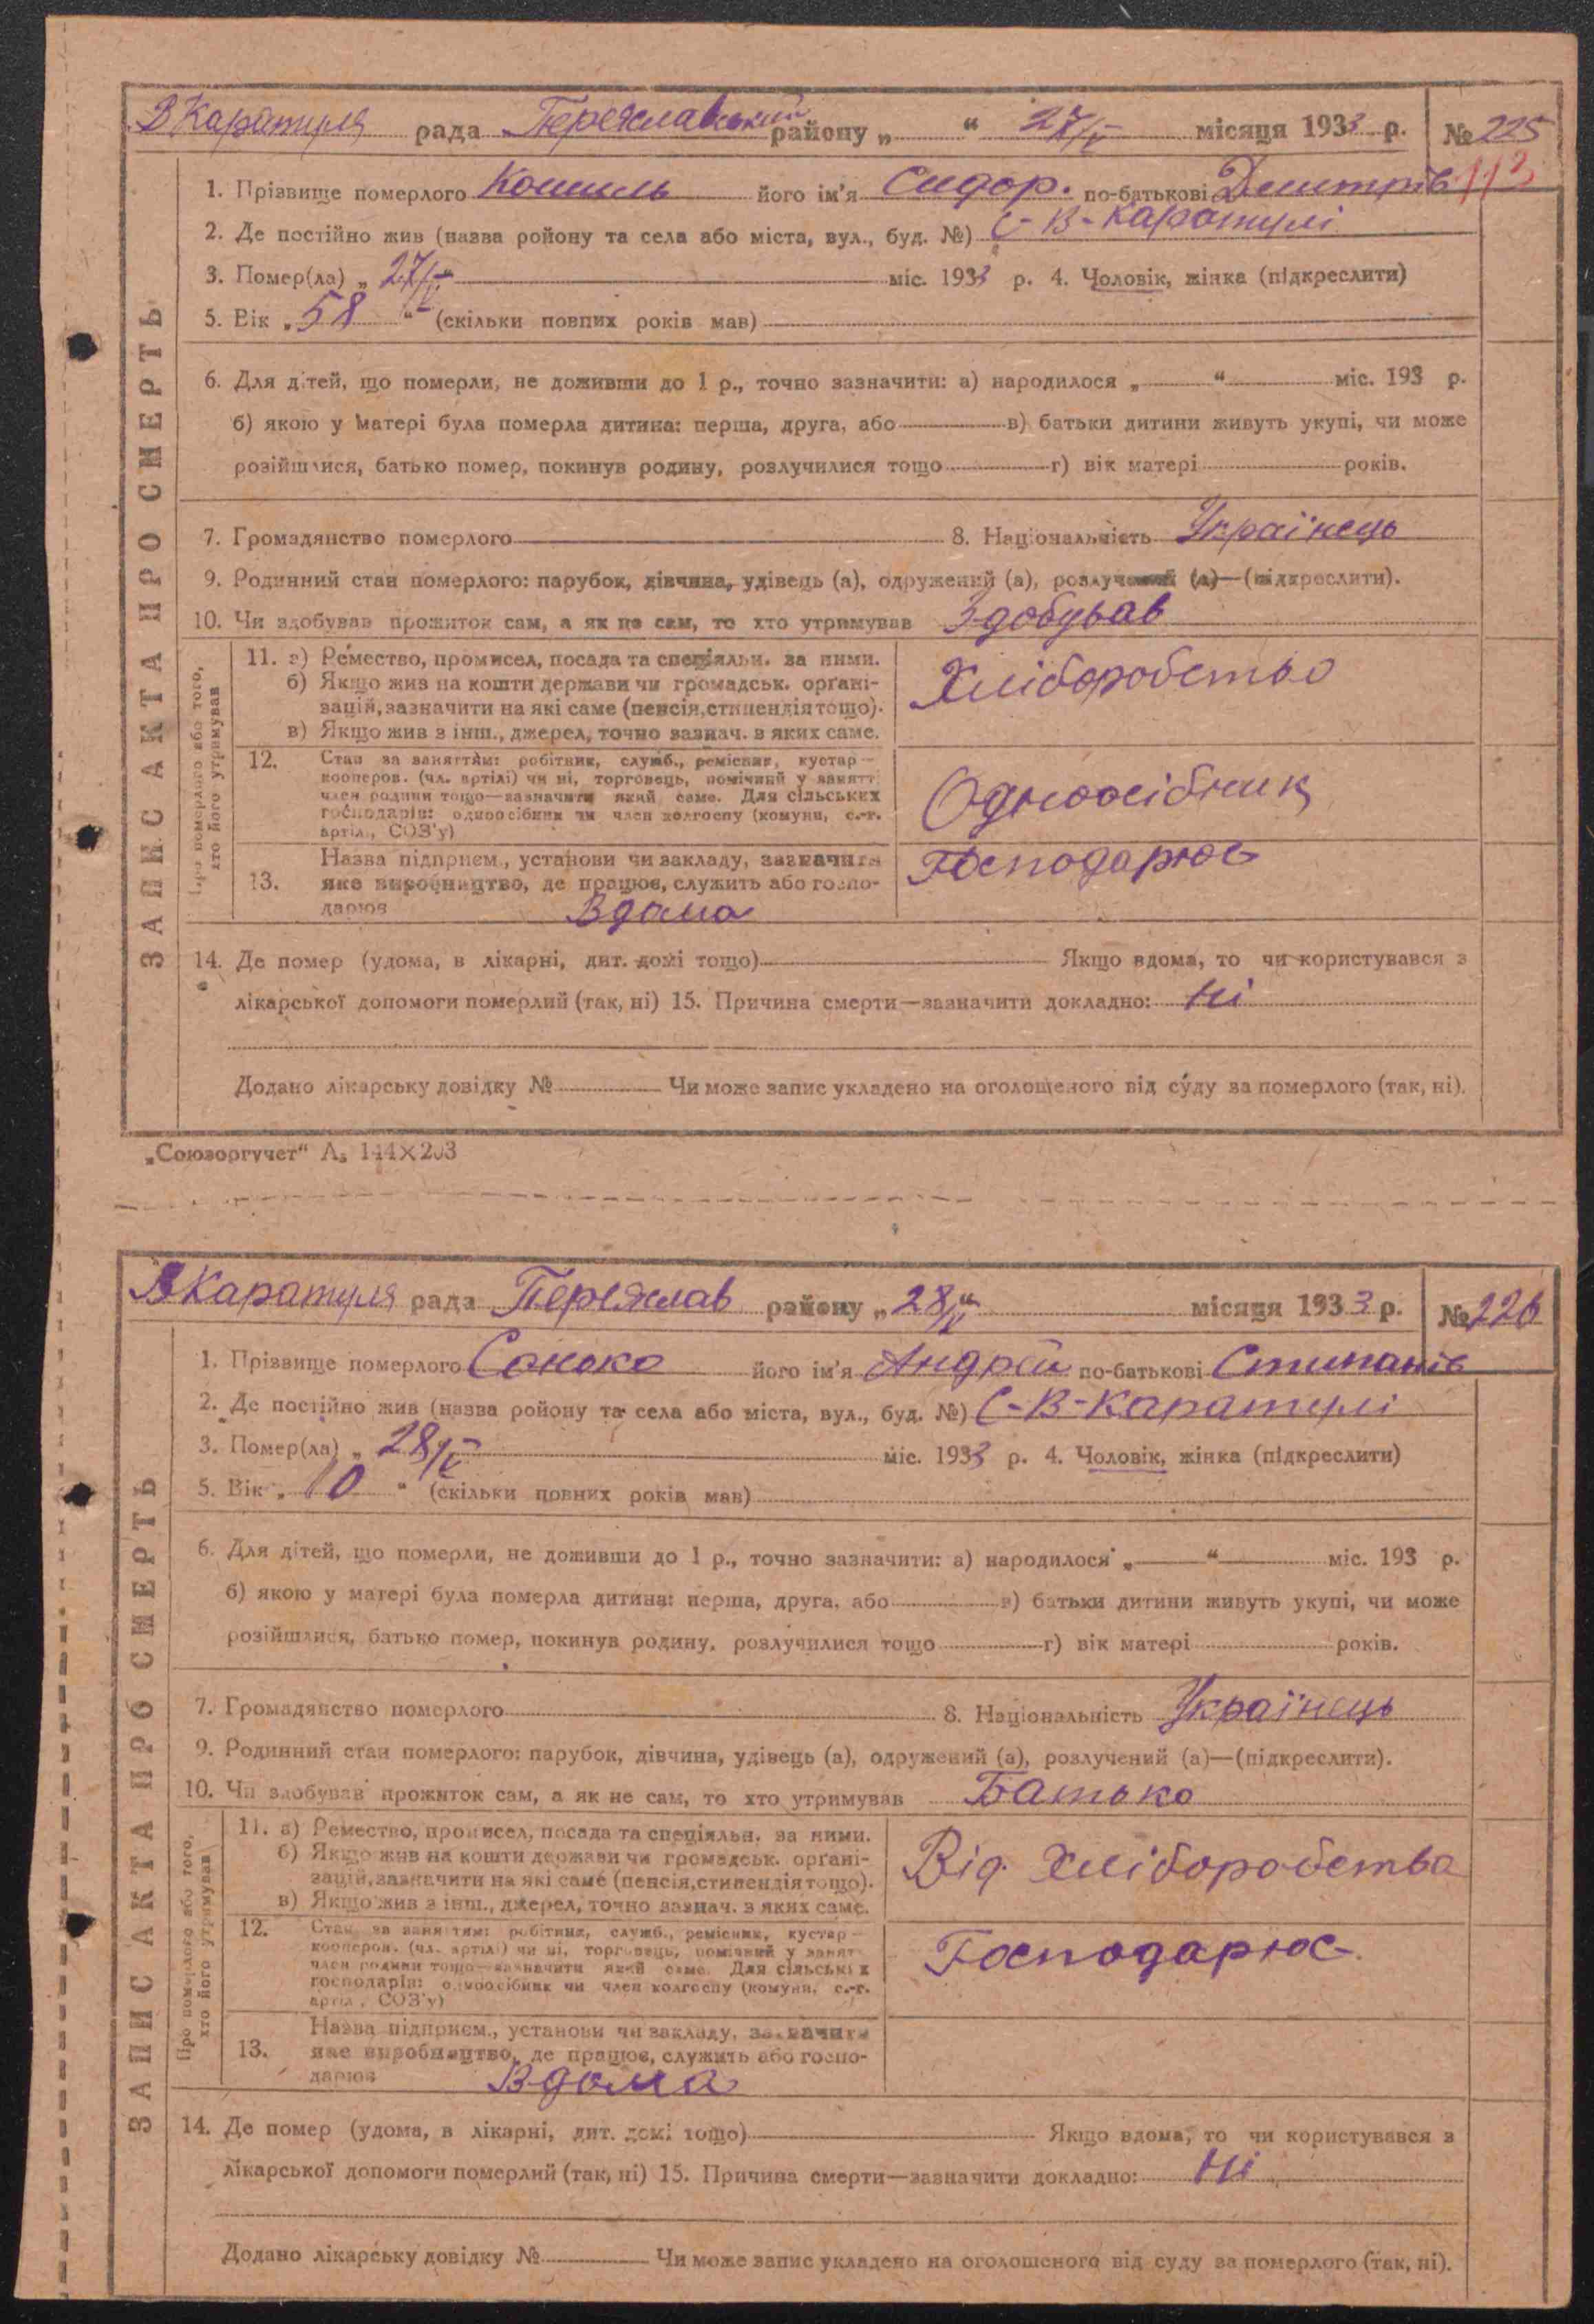 В Каратуля рада Переяславський району „ “ 27/V місяця 1933 р. № 225
113
1. Прізвище померлого Кошиль його ім'я Сидор. по-батькові Дмитрів
2. Де постійно жив (назва ройону та села або міста, вул., буд. №) С-В-Каратулі
3. Помер(ла) „ 27/V міс. 1933 р. 4. Чоловік, жінка (підкреслити)
5. Вік „ 58 “ (скільки повних років мав)
6. Для дітей, що померли, не доживши до 1 р., точно зазначити: а) народилося „ “ міс. 193 р.
б) якою у матері була померла дитина: перша, друга, або в) батьки дитини живуть укупі, чи може
розійшлися, батько помер, покинув родину, розлучилися тощо г) вік матері років.
7. Громадянство померлого 8. Національність Українець
9. Родинний стан померлого: парубок, дівчина, удівець (а), одружений (а), розлучений (а)—(підкреслити).
10. Чи здобував прожиток сам, а як не сам, то хто утримував Здобував
ЗАПИС АКТА ПРО СМЕРТЬ
Про померлого або того, хто його утримував
11. а) Ремество, промисел, посада та спеціяльн. за ними.
б) Якщо жив на кошти держави чи громадськ. орґані-
зацій, зазначити на які саме (пенсія, стипендія тощо).
в) Якщо жив з інш., джерел, точно зазнач. з яких саме.
Хліборобство
12. Стан за заняттям: робітник, служб., ремісник, кустар—
кооперов. (чл. артілі) чи ні, торговець, помічний у занятт.
член родини тощо—зазначити який саме. Для сільських
господарів: одноосібник чи член колгоспу (комуни, с.-г.
артіл., СОЗ'у)
Одноосібник
13. Назва підприєм., установи чи закладу, зазначити
яке виробництво, де працює, служить або госпо-
дарює Вдома
Господарює
14. Де помер (удома, в лікарні, дит. домі тощо) Якщо вдома, то чи користувався з
лікарської допомоги померлий (так, ні) 15. Причина смерти—зазначити докладно: Ні
Додано лікарську довідку № Чи може запис укладено на оголошеного від суду за померлого (так, ні).
„Союзоргучет“ А₅ 144×203
В Каратуля рада Переяслав району „ 28/V “ місяця 1933 р. № 226
1. Прізвище померлого Сококо його ім'я Андрей по-батькові Степанів
2. Де постійно жив (назва ройону та села або міста, вул., буд. №) С-В-Каратулі
3. Помер(ла) „ 28/V міс. 1933 р. 4. Чоловік, жінка (підкреслити)
5. Вік „ 10 “ (скільки повних років мав)
6. Для дітей, що померли, не доживши до 1 р., точно зазначити: а) народилося „ “ міс. 193 р.
б) якою у матері була померла дитина: перша, друга, або в) батьки дитини живуть укупі, чи може
розійшлися, батько помер, покинув родину, розлучилися тощо г) вік матері років.
7. Громадянство померлого 8. Національність Українець
9. Родинний стан померлого: парубок, дівчина, удівець (а), одружений (а), розлучений (а)—(підкреслити).
10. Чи здобував прожиток сам, а як не сам, то хто утримував Батько
ЗАПИС АКТА ПРО СМЕРТЬ
Про померлого або того, хто його утримував
11. а) Ремество, промисел, посада та спеціяльн. за ними.
б) Якщо жив на кошти держави чи громадськ. орґані-
зацій, зазначити на які саме (пенсія, стипендія тощо).
в) Якщо жив з інш., джерел, точно зазнач. з яких саме.
Від. Хліборобства
12. Стан за заняттям: робітник, служб., ремісник, кустар—
кооперов. (чл. артілі) чи ні, торговець, помічний у занятт.
член родини тощо—зазначити який саме. Для сільських
господарів: одноосібник чи член колгоспу (комуни, с.-г.
артіл., СОЗ'у)
Господарює
13. Назва підприєм., установи чи закладу, зазначити
яке виробництво, де працює, служить або госпо-
дарює Вдома
14. Де помер (удома, в лікарні, дит. домі тощо) Якщо вдома, то чи користувався з
лікарської допомоги померлий (так, ні) 15. Причина смерти—зазначити докладно: Ні
Додано лікарську довідку № Чи може запис укладено на оголошеного від суду за померлого (так, ні).